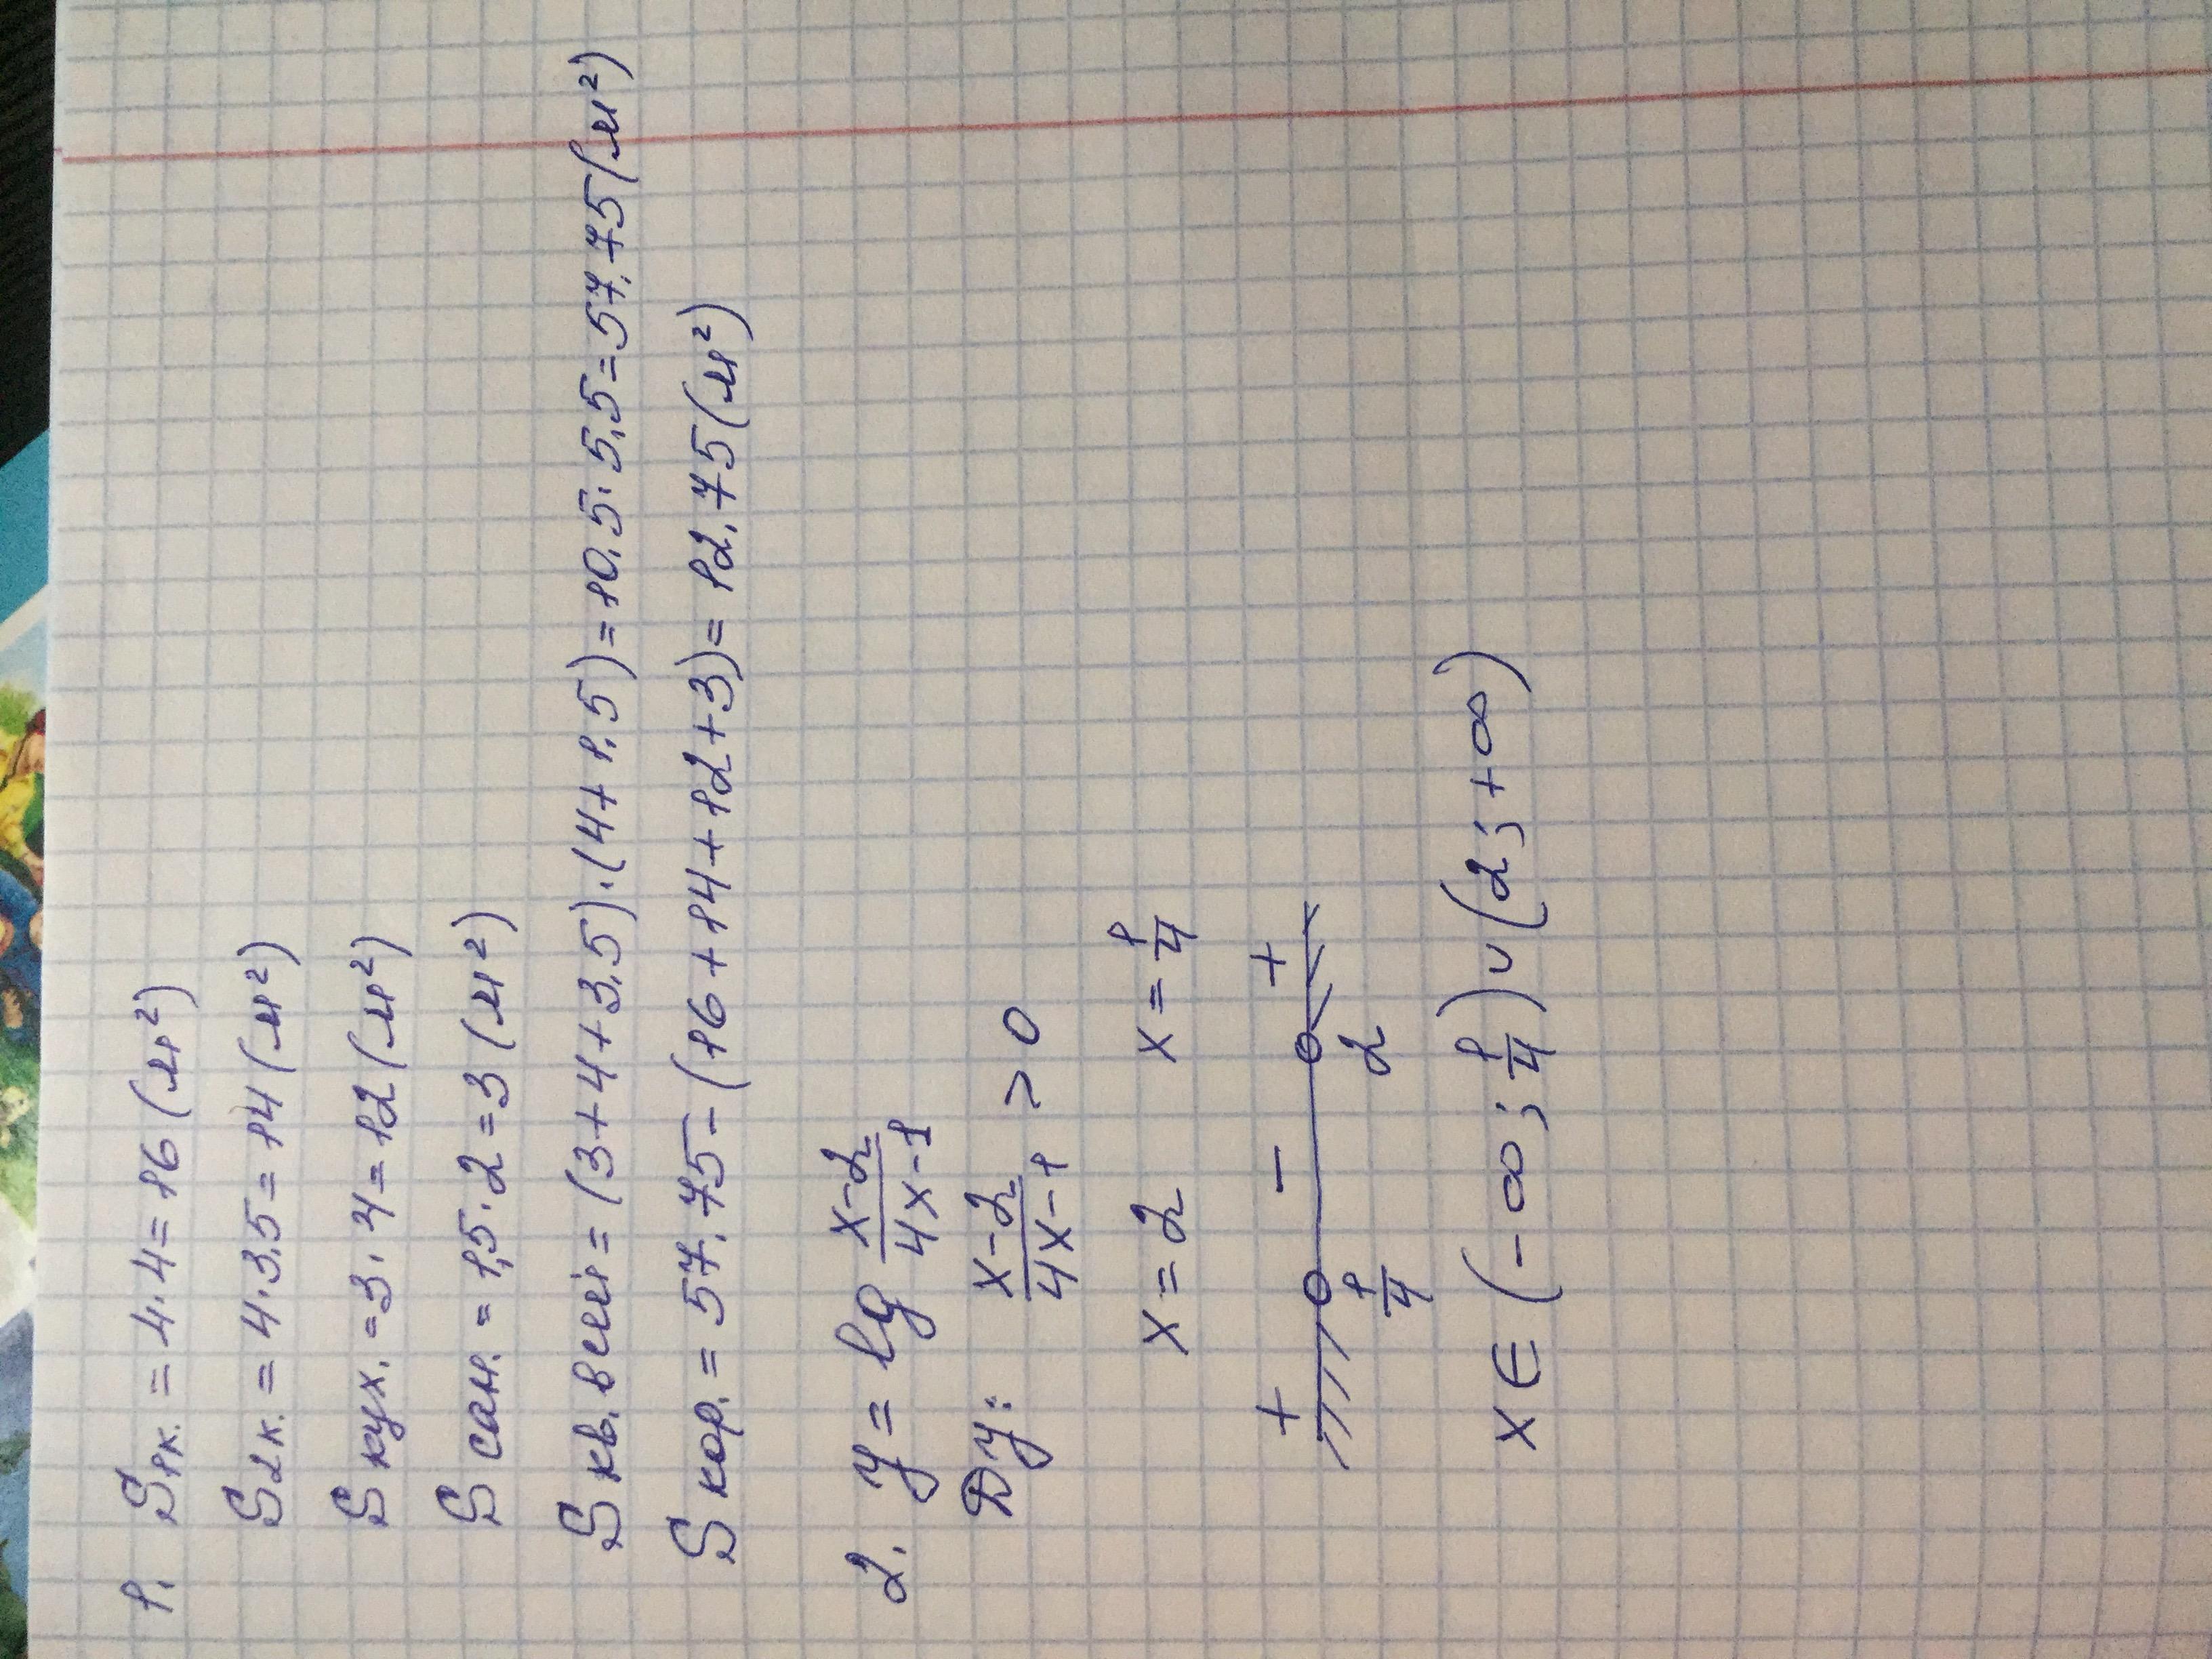 1. S₁ₖ. = 4.4 = 16 (м²)
S₂ₖ. = 4.3.5 = 14 (м²)
S кух. = 3.4 = 12 (м²)
S сан. = 1,5.2 = 3 (м²)
S кв. всей = (3+4+3.5).(4+1.5) = 10.5.5.5 = 57.75 (м²)
S кор. = 57.75 - (16+14+12+3) = 12.75 (м²)
2. y = lg (x-2)/(4x-1)
Dy: (x-2)/(4x-1) > 0
x = 2 x = 1/4
+ - +
1/4 2
x ∈ (-∞; 1/4) ∪ (2; +∞)